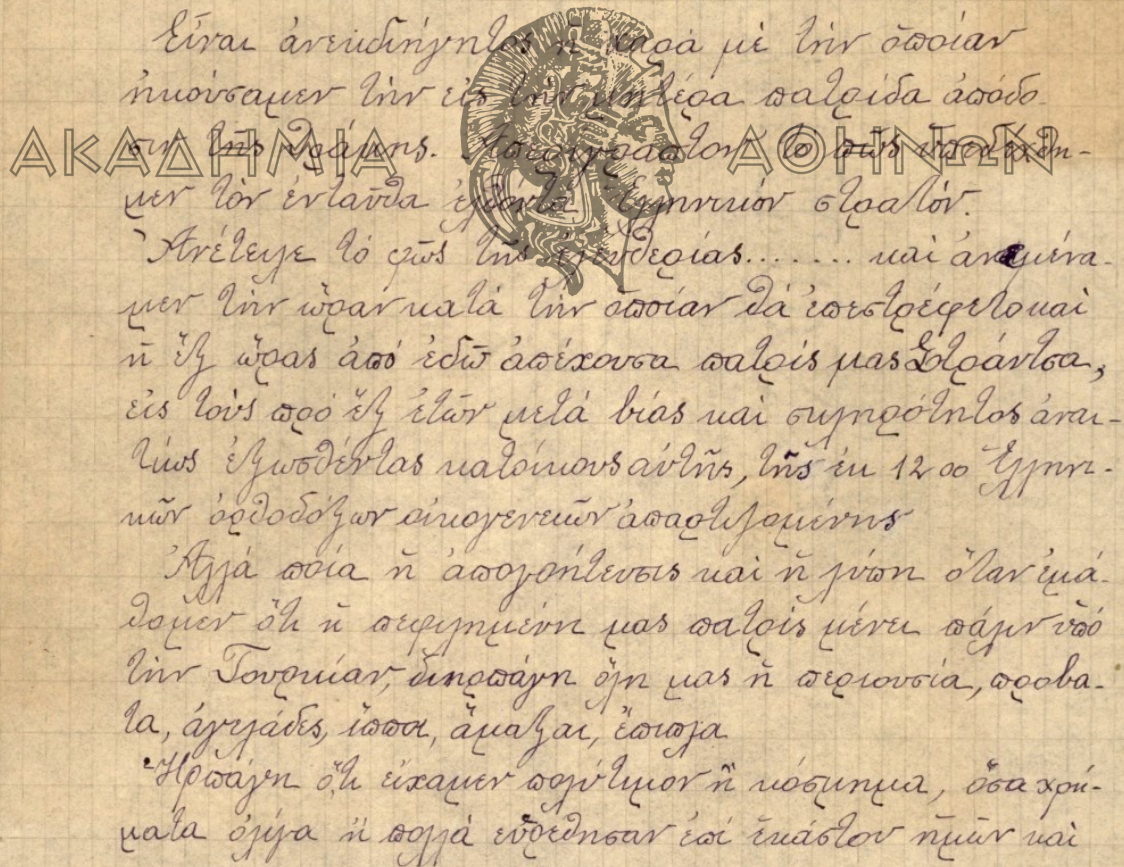 Εἶναι ἀνεκδιήγητος ἡ χαρά μέ τήν ὁποίαν
ἠκούσαμεν τήν εἰς τήν μητέρα πατρίδα ἀπόδο-
σιν τῆς Θράκης. Ἀπερίγραπτον τό πῶς ὑπεδέχθη-
ΑΚΑΔΗΜΙΑ ΑΘΗΝΩΝ
μεν τόν ἐνταῦθα ἐλθόντα Ἑλληνικόν στρατόν.
Ἀνέτειλε τό φῶς τῆς ἐλευθερίας........ καί ἀναμένα-
μεν τήν ὥραν κατά τήν ὁποίαν θά ἐπεστρέφετο καί
ἡ ἕξ ὥρας ἀπό ἐδῶ ἀπέχουσα πατρίς μας Στράντσα,
εἰς τούς πρό ἕξ ἐτῶν μετά βίας καί σκληρότητος ἀναι-
τίως ἐξωσθέντας κατοίκους αὐτῆς, τῆς ἐκ 1200 Ἑλληνι-
κῶν ὀρθοδόξων οἰκογενειῶν ἀπαρτιζομένης
Ἀλλά ποία ἡ ἀπογοήτευσις καί ἡ λύπη ὅταν ἐμά-
θομεν ὅτι ἡ πεφιλημένη μας πατρίς μένει πάλιν ὑπό
τήν Τουρκίαν, διηρπάγη ὅλη μας ἡ περιουσία, πρόβα-
τα, ἀγελάδες, ἵπποι, ἅμαξαι, ἔπιπλα
Ἡρπάγη ὅ,τι εἴχαμεν πολύτιμον ἤ κόσμημα, ὅσα χρή-
ματα ὀλίγα ἤ πολλά εὑρέθησαν ἐπί ἑκάστου ἡμῶν καί